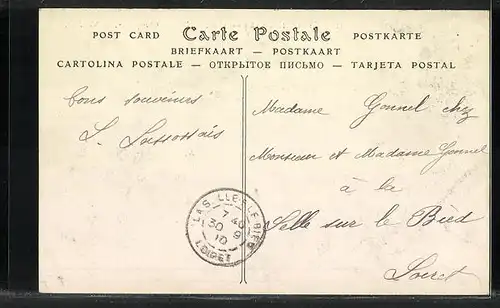 POST CARD Carte Postale POSTKARTE
BRIEFKAART — POSTKAART
CARTOLINA POSTALE — ОТКРЫТОЕ ПИСЬМО — TARJETA POSTAL
bons souvenirs
S.
Madame Gonnel chez
Monsieur et Madame Gonnel
à la
Selle sur le Bied
Loiret
LA SELLE-S-LE BIED
7 40
30 9
10
LOIRET